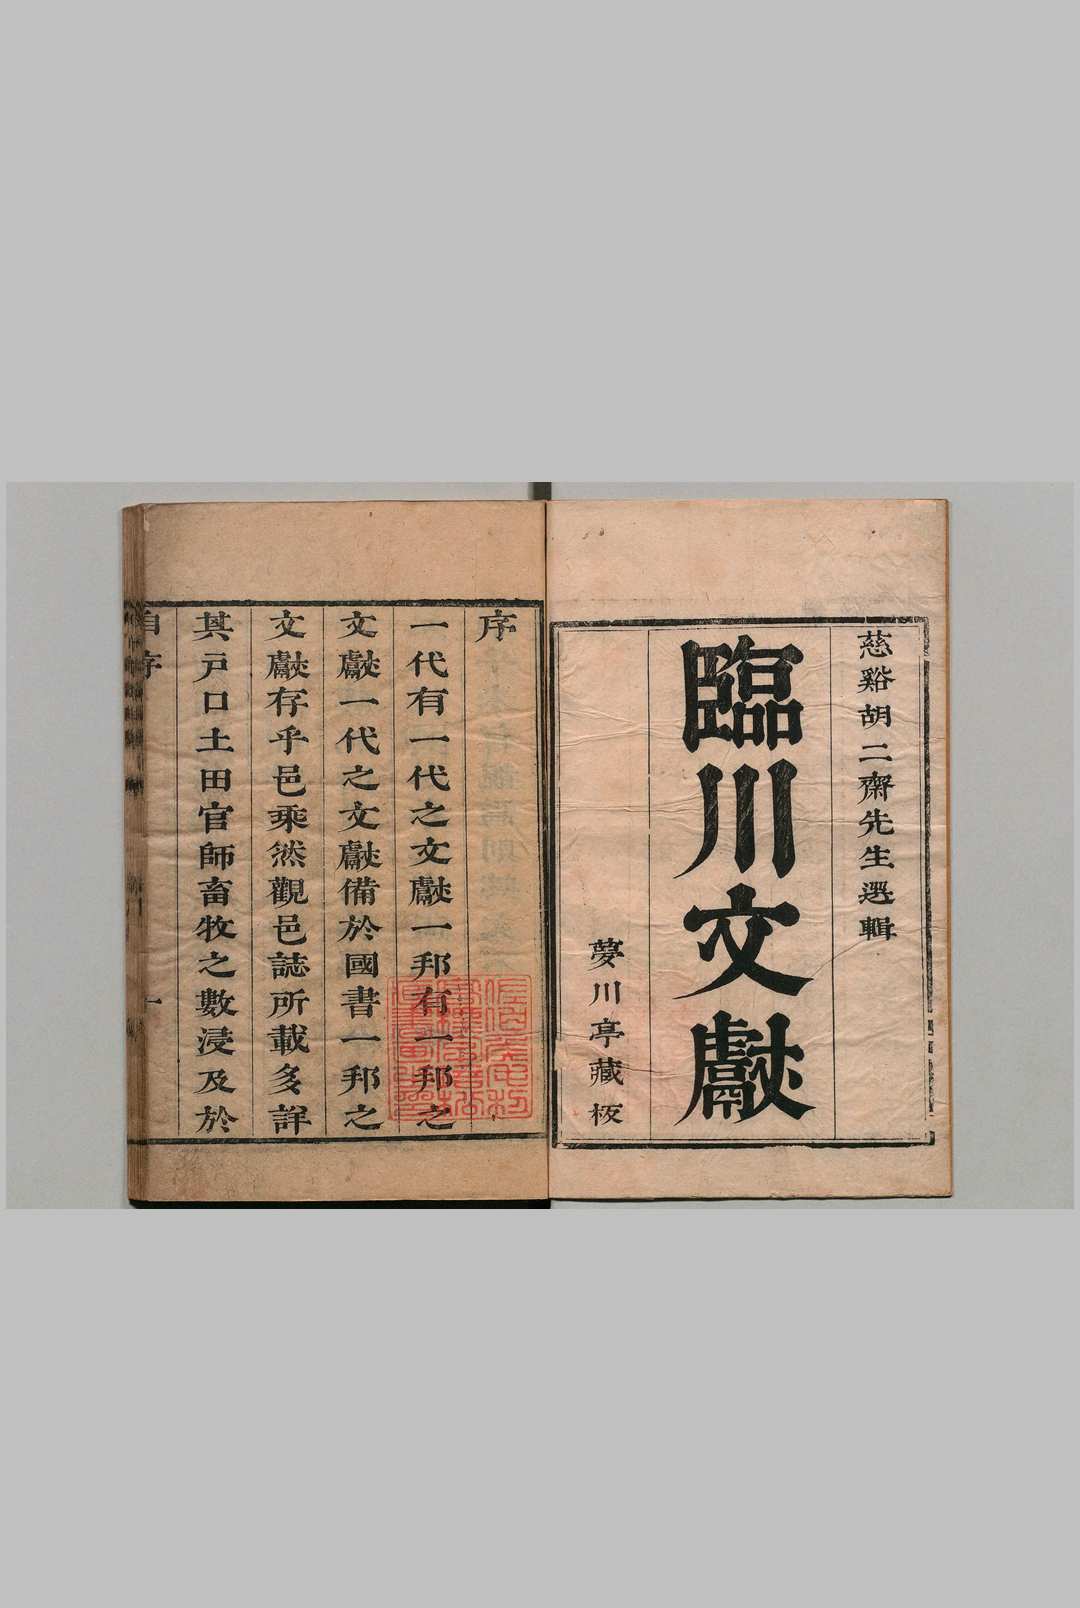 慈谿胡二齋先生選輯
臨川文獻
夢川亭藏板
序
一代有一代之文獻一邦有一邦之
文獻一代之文獻備於國書一邦之
文獻存乎邑乘然觀邑誌所載多詳
其戸口土田官師畜牧之數浸及於
自序
一